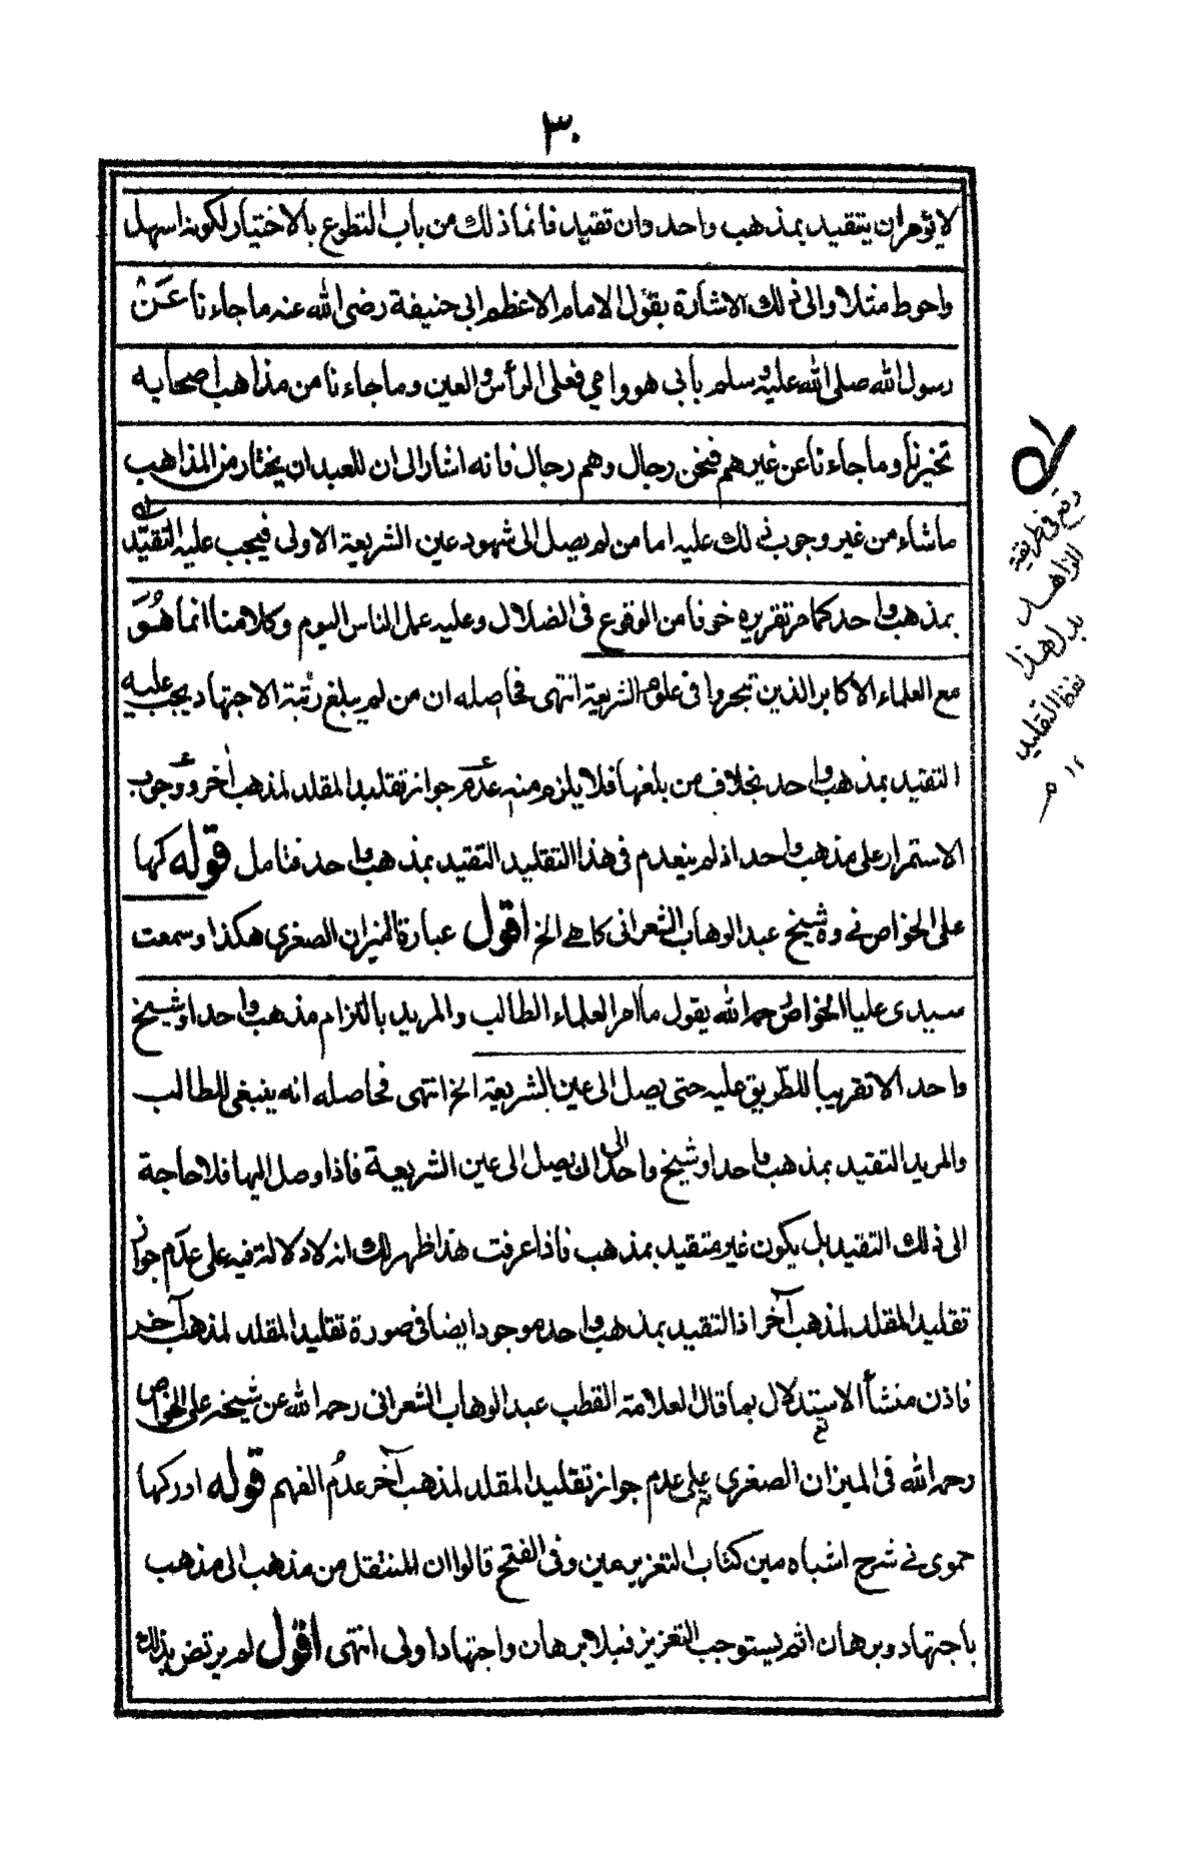 ٣٠
لا يؤمر ان يتقيد بمذهب واحد وان تقيد فانما ذلك من باب التطوع بالاختيار لكونه اسهل
واحوط مثلا والى ذلك الاشارة بقول الامام الاعظم ابى حنيفة رضى الله عنه ما جاءنا عَنْ
رسول الله صلى الله عليه وسلم بابى هو وامى فعلى الرأس والعين وما جاءنا من مذاهب اصحابه
تخيرنا وما جاءنا عن غيرهم فنحن رجال وهم رجال فانه اشار الى ان للعبد ان يختار من المذاهب
ماشاء من غير وجوب ذلك عليه اما من لم يصل الى شهود عين الشريعة الاولى فيجب عليه التقيّد
بمذهب واحد كما مر تقريره خوفا من الوقوع فى الضلال وعليه عمل الناس اليوم وكلامنا انما هُوَ
مع العلماء الاكابر الذين تبحروا فى علوم الشريعة انتهى فحاصله ان من لم يبلغ رُتبة الاجتهاد يجب عليه
التقيد بمذهب واحد بخلاف من بلغها فلا يلزم منه عدم جواز تقليد المقلد لمذهب اٰخر ووجوب
الاستمرار على مذهب واحد اذ لم ينعدم فى هذا التقليد التقيد بمذهب واحد فتامل قوله كہا
على الخواص نے وہ شيخ عبد الوهاب الشعرانى كا ہے الخ اقول عبارة الميزان الصغرى هكذا وسمعت
سيدى عليا الخواص رحمه الله يقول ما امر العلماء الطالب والمريد بالتزام مذهب واحد او شيخ
واحد الا تقريبا للطريق عليه حتى يصل الى عين الشريعة الخ انتهى فحاصله انه ينبغى للطالب
والمريد التقيد بمذهب واحد او شيخ واحد الى ان يصل الى عين الشريعة فاذا وصل اليها فلا حاجة
الى ذلك التقيد بل يكون غير متقيد بمذهب فاذا عرفت هذا ظهر لك انه لا دلالة فيه على عدم جواز
تقليد المقلد لمذهب آخر اذ التقيد بمذهب واحد موجود ايضا فى صورة تقليد المقلد لمذهب آخر
فاذن منشأ الاستدلال بما قال العلامة القطب عبد الوهاب الشعرانى رحمه الله عن شيخه على الخواص
رحمه الله فى الميزان الصغرى على عدم جواز تقليد المقلد لمذهب آخر عدمُ الفهم قوله اور كہا
حموى نے شرح اشباه مين كتاب التعزير مين وفى الفتح قالوا ان المنتقل من مذهب الى مذهب
باجتهاد وبرهان اثم يستوجب التعزيز فبلا برهان واجتهاد اولى انتهى اقول لم يرتض بذلك
وقع فى طريقة
الذاهب
بدل هذا
لفظ التقليد
١٢ م